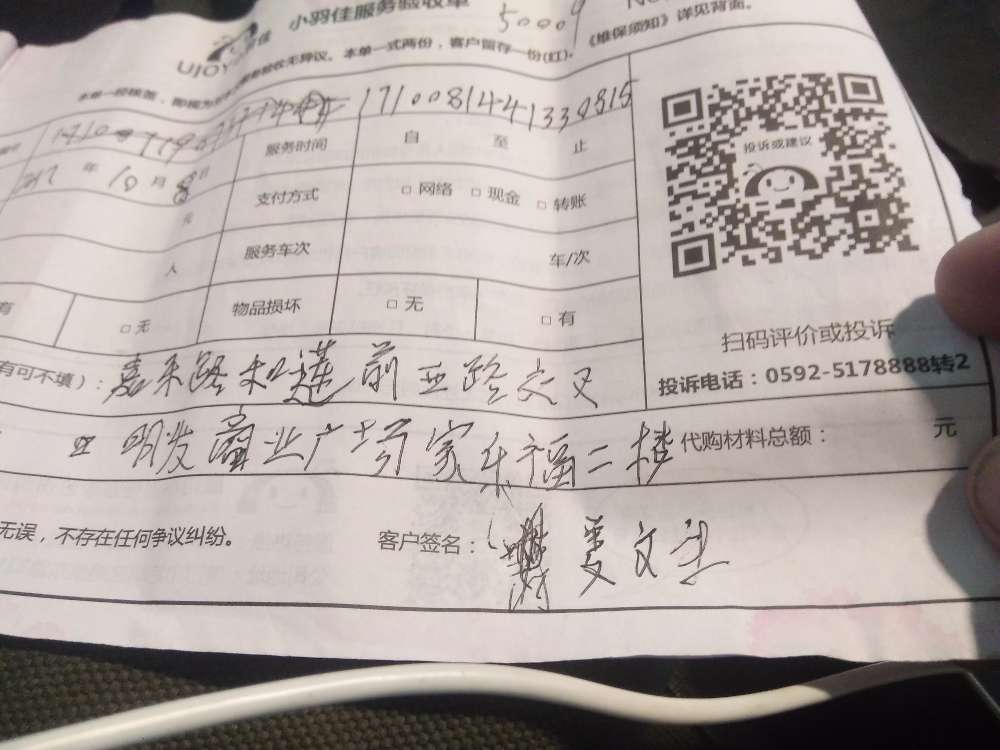 小羽佳服务验收单
50009
UJOY
本单一式两份，客户留存一份(红)。《维保须知》详见背面。
1710081441330815
服务时间 自 至 止
年 10 月 8 日
支付方式 □ 网络 □ 现金 □ 转账
元
投诉或建议
人 服务车次 车/次
有 □ 无 物品损坏 □ 无 □ 有
扫码评价或投诉
投诉电话：0592-5178888转2
有可不填）：嘉禾路和莲前西路交叉
明发商业广场家乐福二楼 代购材料总额： 元
无误，不存在任何争议纠纷。 客户签名：